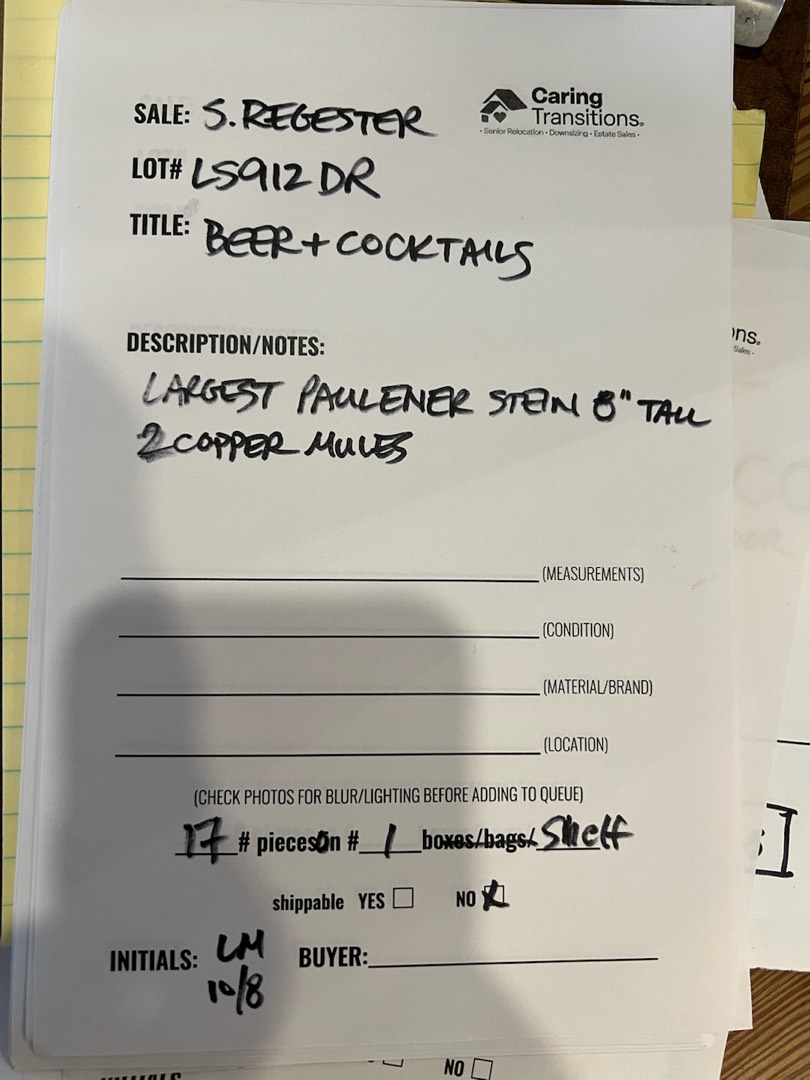 SALE: S. REGESTER
Caring
Transitions.
• Senior Relocation • Downsizing • Estate Sales •
LOT# LS912 DR
TITLE: BEER + COCKTAILS
DESCRIPTION/NOTES:
LARGEST PAULENER STEIN 8" TALL
2 COPPER MULES
(MEASUREMENTS)
(CONDITION)
(MATERIAL/BRAND)
(LOCATION)
(CHECK PHOTOS FOR BLUR/LIGHTING BEFORE ADDING TO QUEUE)
17 # pieces On # 1 boxes/bags/ Shelf
shippable YES NO X
INITIALS: LM
10/8
BUYER:
ons.
Sales •
NO